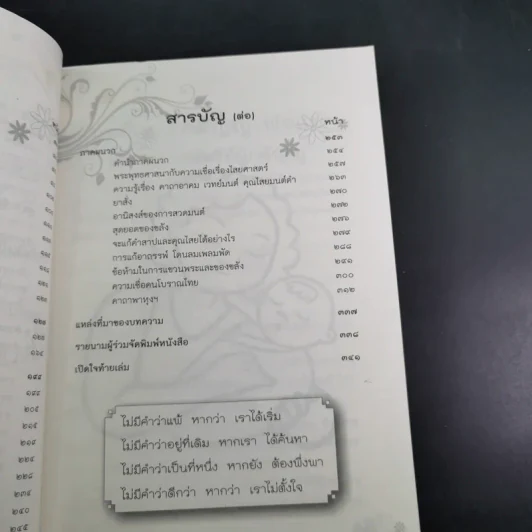 สารบัญ (ต่อ)
หน้า
ภาคผนวก ๒๕๓
คำนำภาคผนวก ๒๕๔
พระพุทธศาสนากับความเชื่อเรื่องไสยศาสตร์ ๒๕๗
ความรู้เรื่อง คาถาอาคม เวทย์มนต์ คุณไสยมนต์ดำ ๒๖๓
ยาสั่ง ๒๗๐
อานิสงส์ของการสวดมนต์ ๒๗๒
สุดยอดของขลัง ๒๗๖
จะแก้คำสาปและคุณไสยได้อย่างไร ๒๗๙
การแก้อาถรรพ์ โดนลมเพลมพัด ๒๘๘
ข้อห้ามในการแขวนพระและของขลัง ๒๙๑
ความเชื่อคนโบราณไทย ๓๐๐
คาถาพาหุงฯ ๓๑๒
แหล่งที่มาของบทความ ๓๓๗
รายนามผู้ร่วมจัดพิมพ์หนังสือ ๓๓๘
เปิดใจท้ายเล่ม ๓๔๑
ไม่มีคำว่าแพ้ หากว่า เราได้เริ่ม
ไม่มีคำว่าอยู่ที่เดิม หากเรา ได้ค้นหา
ไม่มีคำว่าเป็นที่หนึ่ง หากยัง ต้องพึ่งพา
ไม่มีคำว่าดีกว่า หากว่า เราไม่ตั้งใจ
๑๖๔
๑๙๔
๒๐๕
๒๑๕
๒๑๙
๒๒๔
๒๒๘
๒๓๔
๒๔๐
๒๔๕